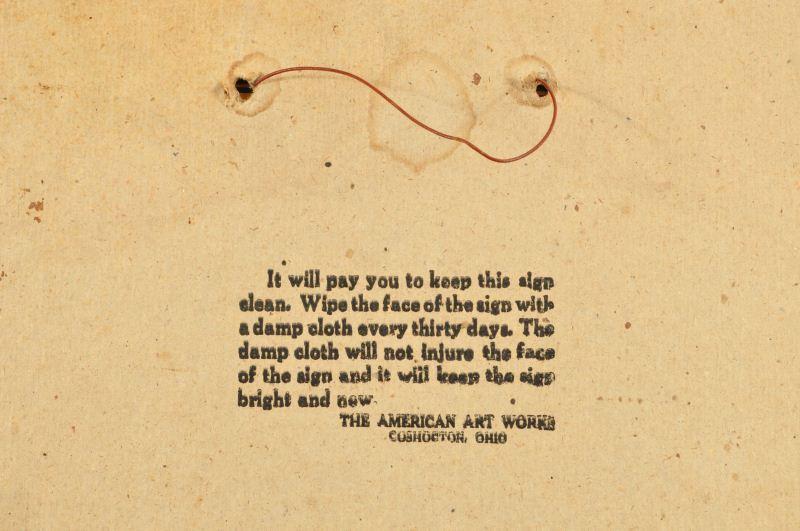 It will pay you to keep this sign
clean. Wipe the face of the sign with
a damp cloth every thirty days. The
damp cloth will not injure the face
of the sign and it will keep the sign
bright and new.
THE AMERICAN ART WORKS
COSHOCTON, OHIO